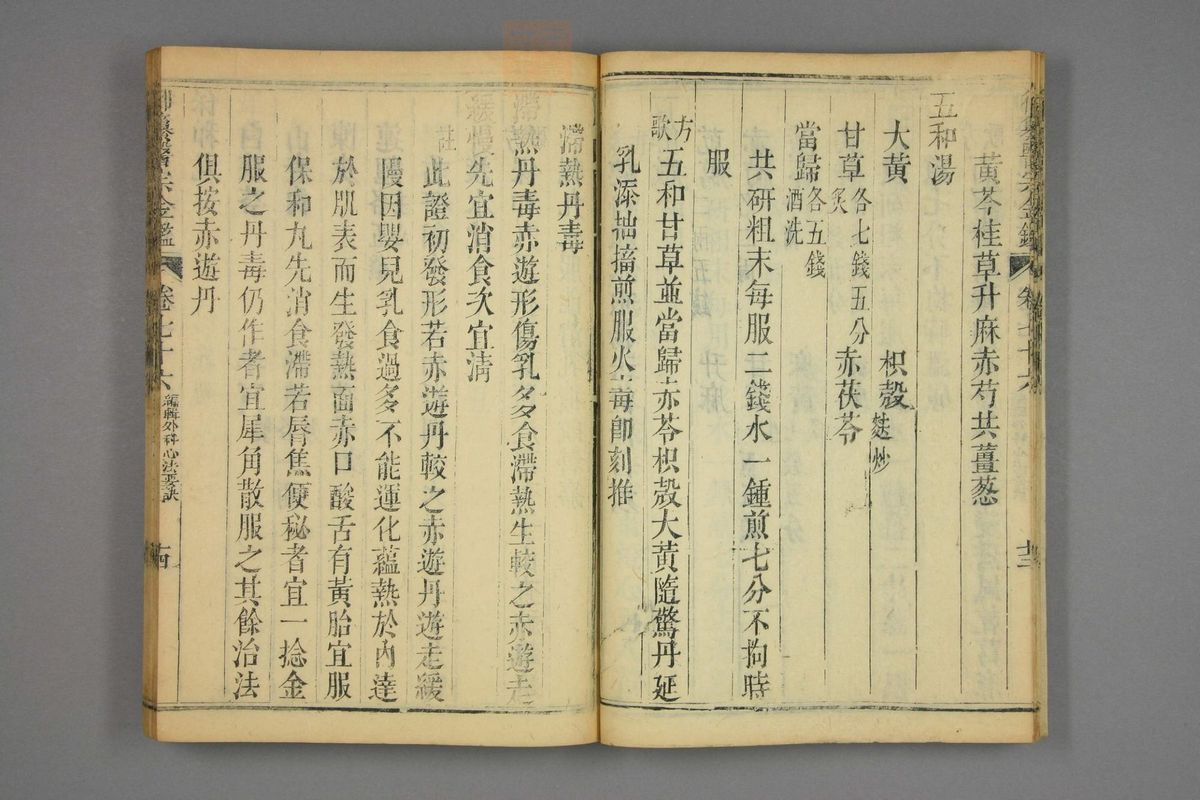 黃芩桂草升麻赤芍共薑葱
五和湯
大黃　枳殼麩炒
甘草炙各七錢五分　赤茯苓
當歸酒洗各五錢
共研粗末每服二錢水一鍾煎七分不拘時
服
方歌　五和甘草並當歸赤苓枳殼大黃隨驚丹延
乳添拙搐煎服火毒即刻推
滯熱丹毒
滯熱丹毒赤遊形傷乳多食滯熱生較之赤遊走
緩慢先宜消食次宜清
註　此證初發形若赤遊丹較之赤遊丹遊走緩
慢因嬰兒乳食過多不能運化蘊熱於內達
於肌表而生發熱面赤口酸舌有黃胎宜服
保和丸先消食滯若唇焦便秘者宜一捻金
服之丹毒仍作者宜犀角散服之其餘治法
俱按赤遊丹
御纂醫宗金鑑　卷七十六　編輯外科心法要訣　十四